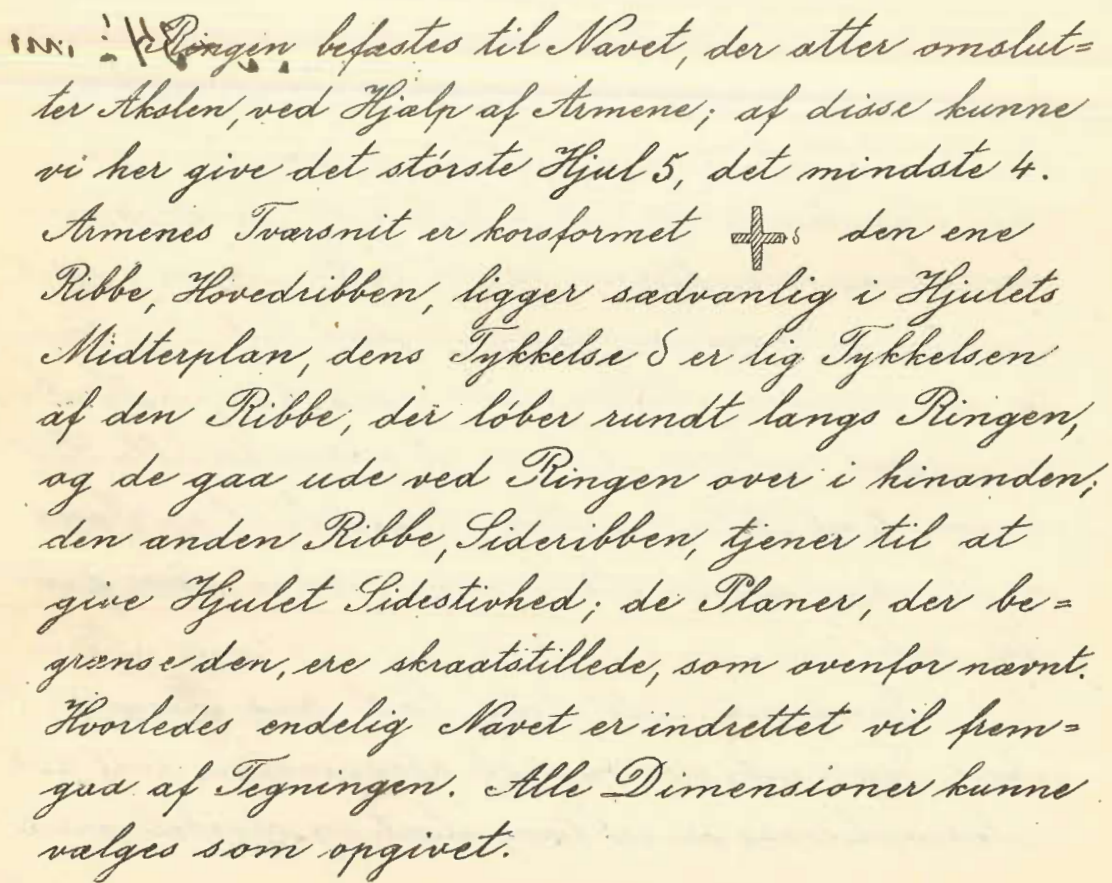 Ringen befæstes til Navet, der atter omslut=
ter Akslen, ved Hjælp af Armene; af disse kunne
vi her give det störste Hjul 5, det mindste 4.
Armenes Tværsnit er korsformet δ den ene
Ribbe, Hovedribben, ligger sædvanlig i Hjulets
Midterplan, dens Tykkelse δ er lig Tykkelsen
af den Ribbe, der löber rundt langs Ringen,
og de gaa ude ved Ringen over i hinanden;
den anden Ribbe, Sideribben, tjener til at
give Hjulet Sidestivhed; de Planer, der be=
grænse den, ere skraatstillede, som ovenfor nævnt.
Hvorledes endelig Navet er indrettet vil frem=
gaa af Tegningen. Alle Dimensioner kunne
vælges som opgivet.